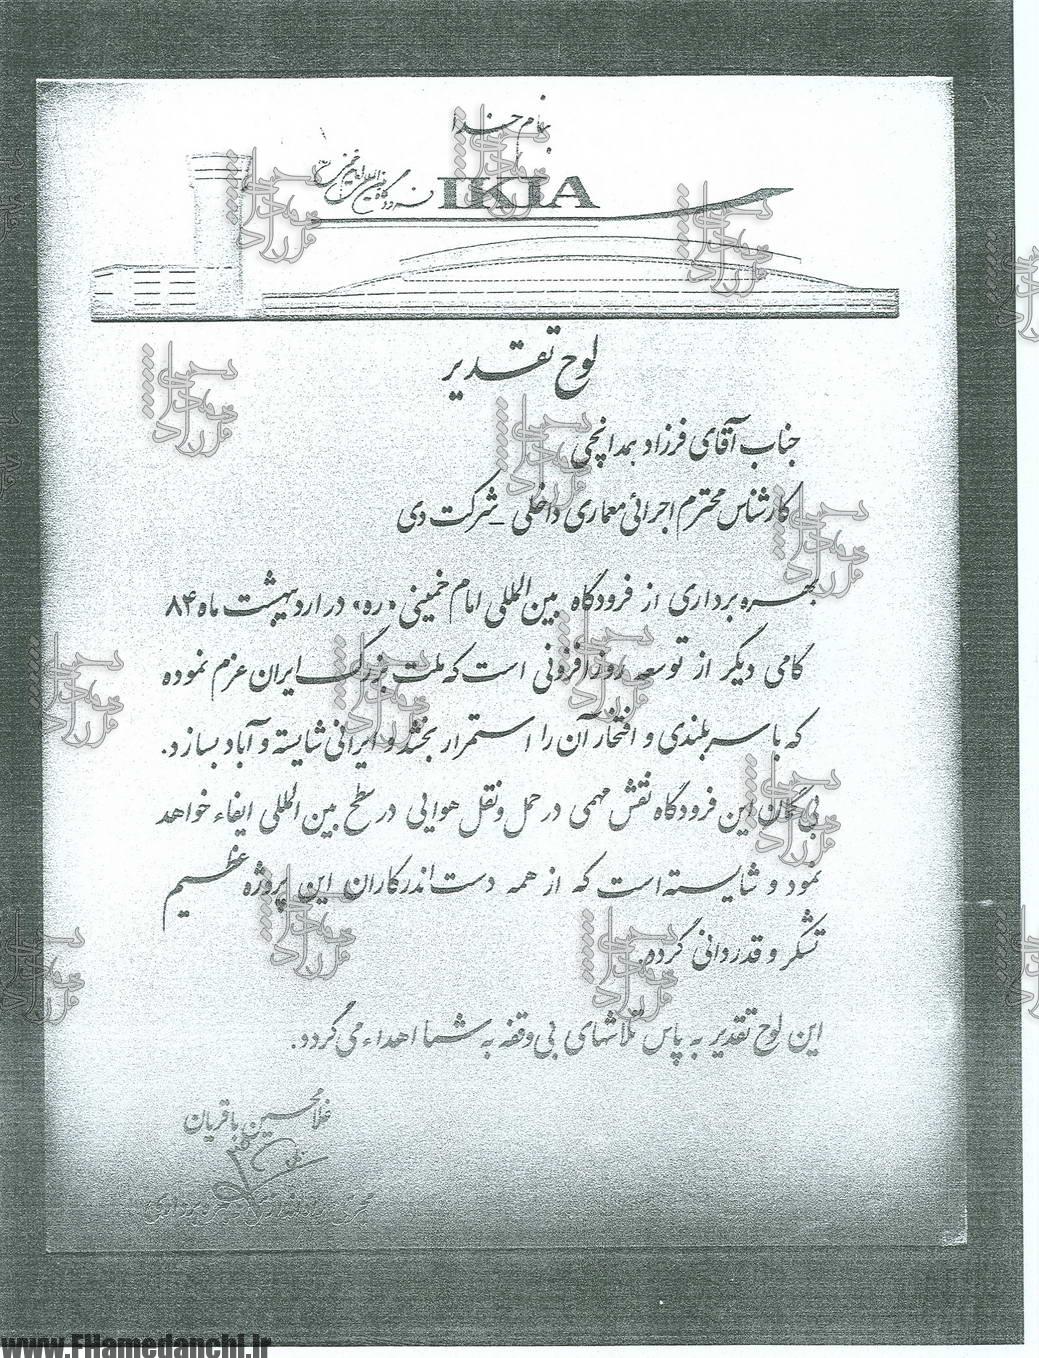 بنام خدا
فرودگاه بین المللی امام خمینی
IKIA
لوح تقدیر
جناب آقای فرزاد همدانچی
کارشناس محترم اجرائی معماری داخلی - شرکت دی
بهره برداری از فرودگاه بین المللی امام خمینی «ره» در اردیبهشت ماه ۸۴
گامی دیگر از توسعه روزافزونی است که ملت بزرگ ایران عزم نموده
که با سربلندی و افتخار آن را استمرار بخشد و ایرانی شایسته و آباد بسازد.
بی گمان این فرودگاه نقش مهمی در حمل و نقل هوایی در سطح بین المللی ایفاء خواهد
نمود و شایسته است که از همه دست اندرکاران این پروژه عظیم
تشکر و قدردانی گردد.
این لوح تقدیر به پاس تلاشهای بی وقفه به شما اهداء می گردد.
غلامحسین باقریان
www.FHamedanchi.ir